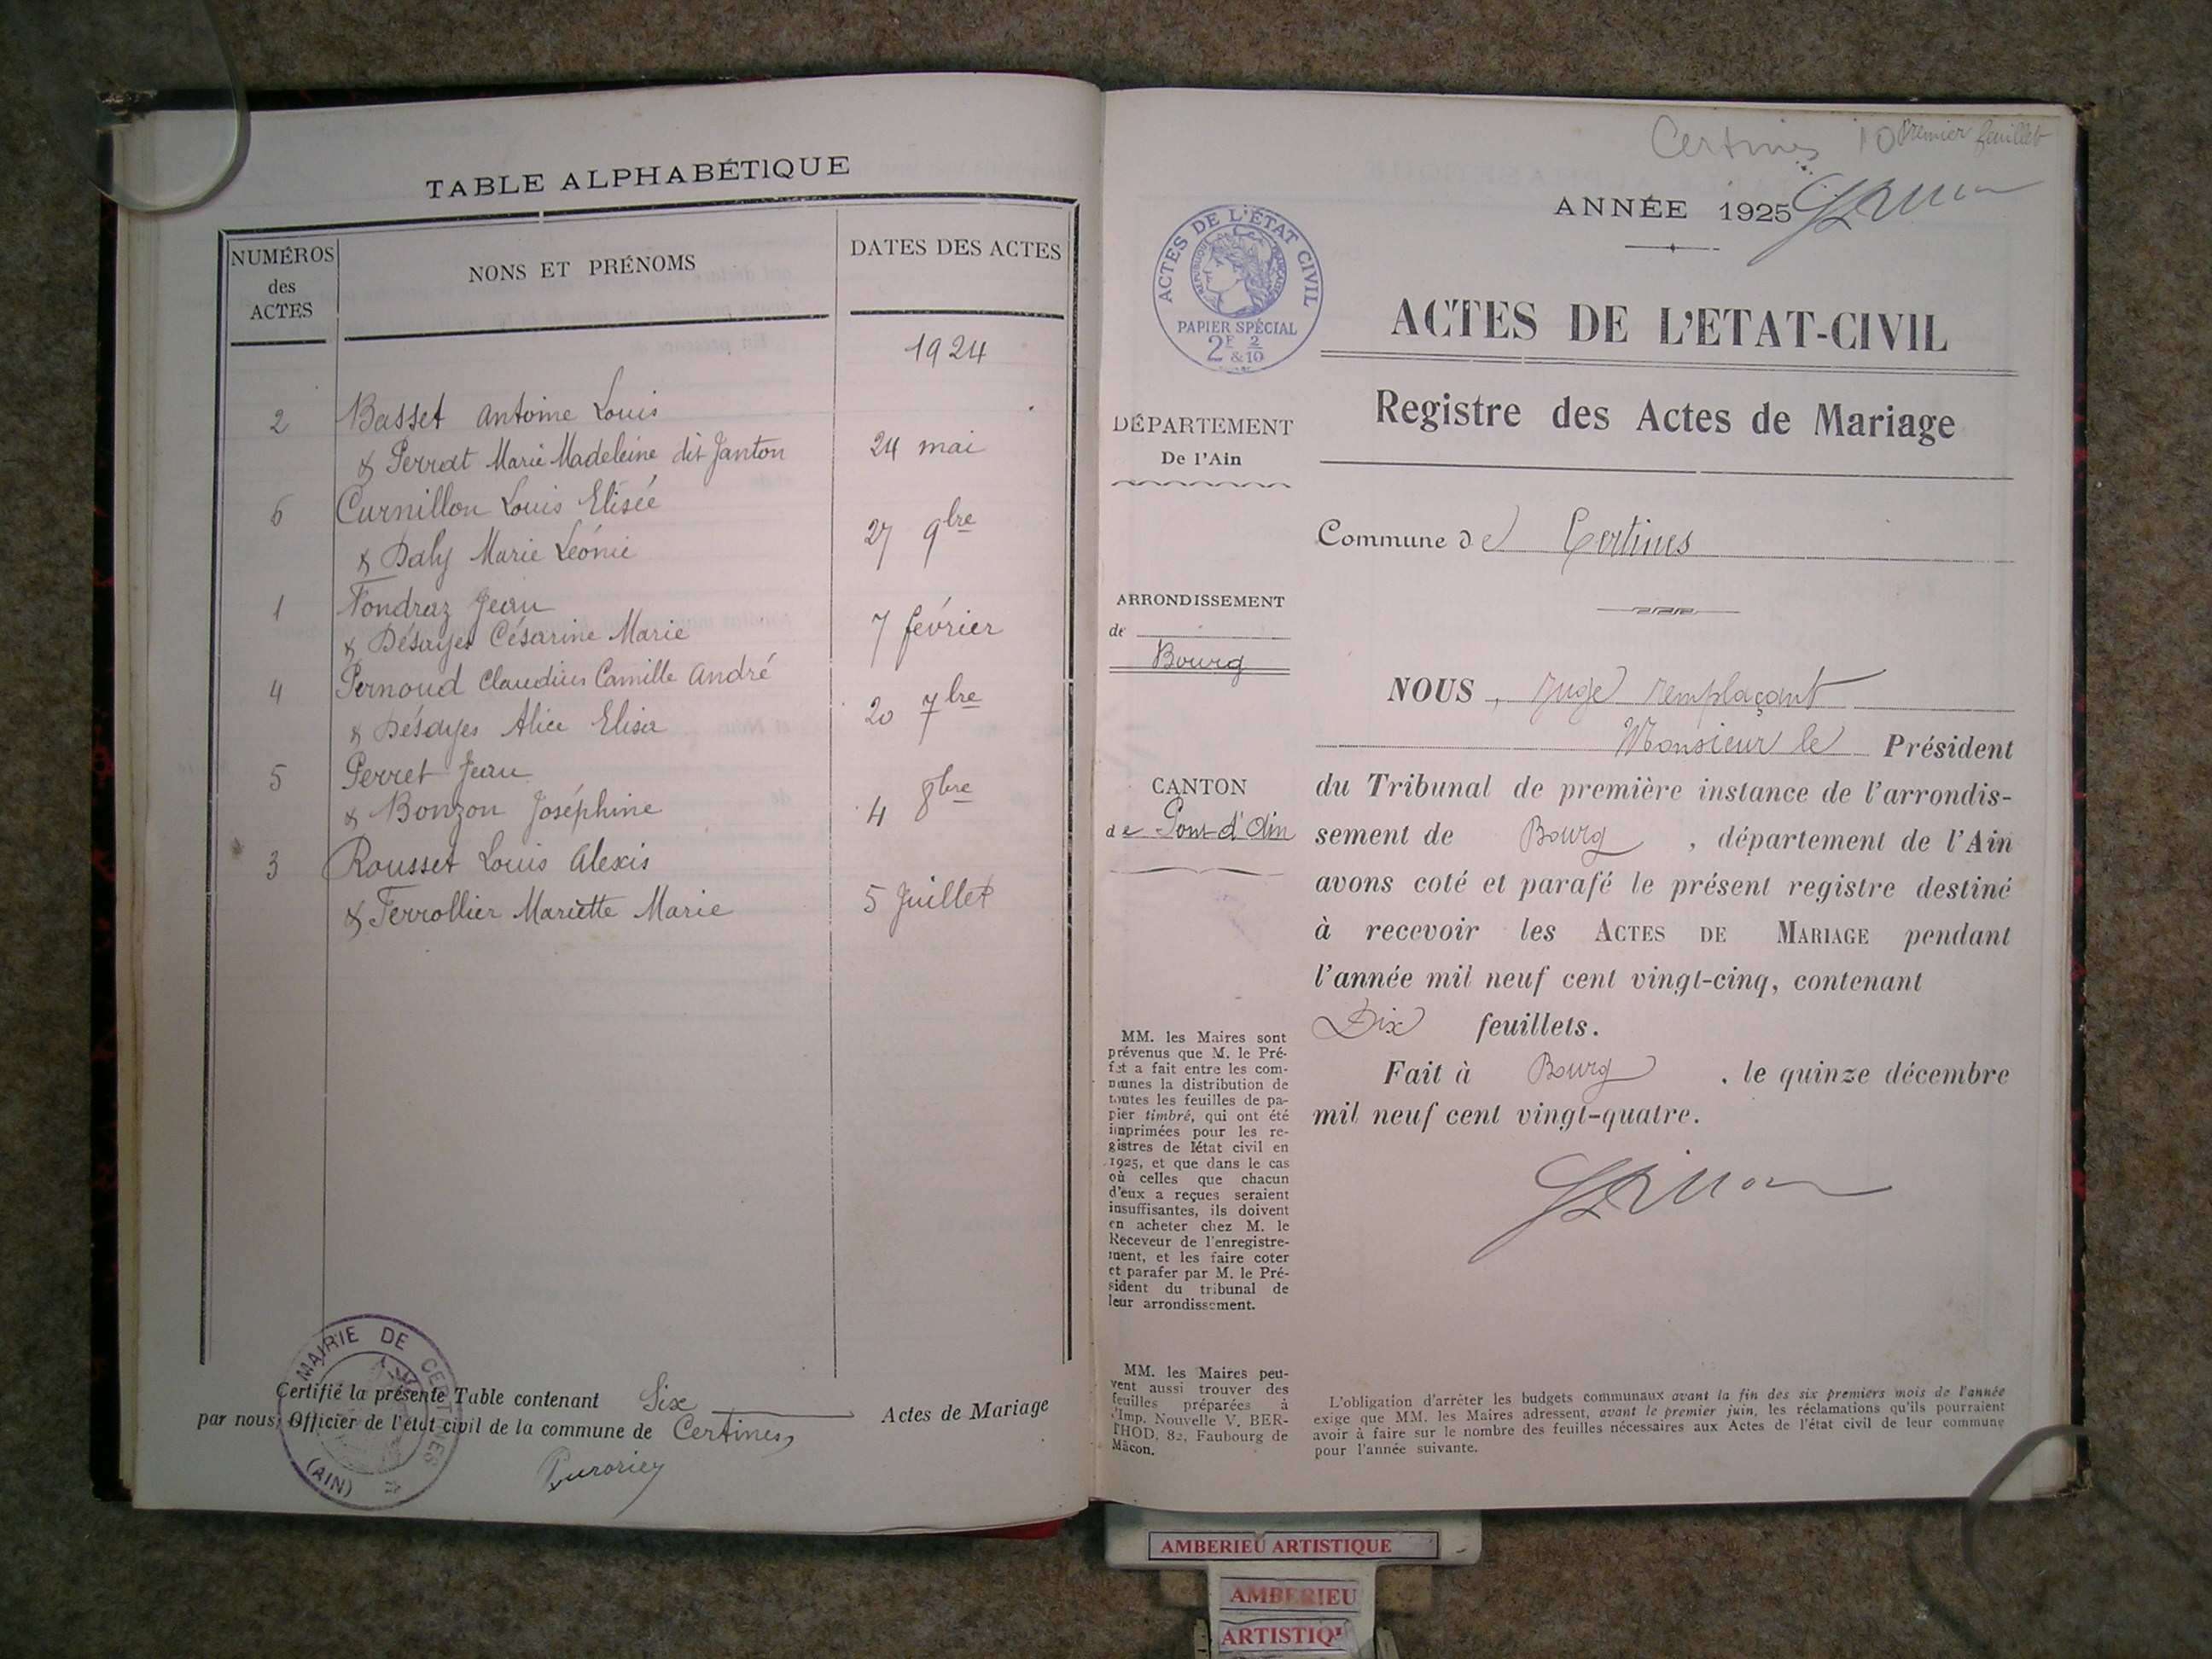 TABLE ALPHABÉTIQUE
NUMÉROS
des
ACTES
NONS ET PRÉNOMS
DATES DES ACTES
1924
2 Basset Antoine Louis
& Perrat Marie Madeleine dit Janton 24 mai
6 Curnillon Louis Elisée
& Daly Marie Léonie 27 9bre
1 Fondraz Jean
& Désayes Césarine Marie 7 février
4 Pernoud Claudius Camille André
& Désayes Alice Elisa 20 7bre
5 Perret Jean
& Bonzon Joséphine 4 8bre
3 Rousset Louis Alexis
& Ferrollier Mariette Marie 5 Juillet
Certifié la présente Table contenant Six Actes de Mariage
par nous, Officier de l'état civil de la commune de Certines
MAIRIE DE CERTINES
(AIN)
Certines 10 Premier feuillet
ANNÉE 1925
ACTES DE L'ÉTAT CIVIL
RÉPUBLIQUE FRANÇAISE
PAPIER SPÉCIAL
2F 2
& 10
ACTES DE L'ETAT-CIVIL
Registre des Actes de Mariage
DÉPARTEMENT
De l'Ain
Commune de Certines
ARRONDISSEMENT
de
Bourg
CANTON
de Pont-d'Ain
NOUS, Juge remplaçant
Monsieur le Président
du Tribunal de première instance de l'arrondis-
sement de Bourg, département de l'Ain
avons coté et parafé le présent registre destiné
à recevoir les ACTES DE MARIAGE pendant
l'année mil neuf cent vingt-cinq, contenant
Dix feuillets.
Fait à Bourg, le quinze décembre
mil neuf cent vingt-quatre.
MM. les Maires sont
prévenus que M. le Pré-
fet a fait entre les com-
munes la distribution de
toutes les feuilles de pa-
pier timbré, qui ont été
imprimées pour les re-
gistres de l'état civil en
1925, et que dans le cas
où celles que chacun
d'eux a reçues seraient
insuffisantes, ils doivent
en acheter chez M. le
Receveur de l'enregistre-
ment, et les faire coter
et parafer par M. le Pré-
sident du tribunal de
leur arrondissement.
MM. les Maires peu-
vent aussi trouver des
feuilles préparées à
l'Imp. Nouvelle V. BER-
THOD, 82, Faubourg de
Mâcon.
L'obligation d'arrêter les budgets communaux avant la fin des six premiers mois de l'année
exige que MM. les Maires adressent, avant le premier juin, les réclamations qu'ils pourraient
avoir à faire sur le nombre des feuilles nécessaires aux Actes de l'état civil de leur commune
pour l'année suivante.
AMBERIEU ARTISTIQUE
AMBERIEU
ARTISTIQU